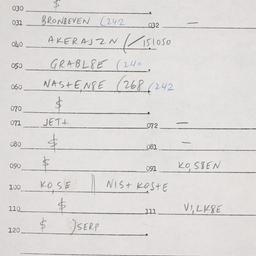 030 $
031 BRONBEVEN (242 032 —
040 AKERAJZN (/151050
050 GRABL8E (240
060 NASTENSE (268 (242
070 $
071 JET+ 072 —
080 $ 081 —
090 $ 091 KO,S8EN
100 KO,SE || NIS+ KOS+E
110 $ 111 VI,LK8E
120 $ )SERP